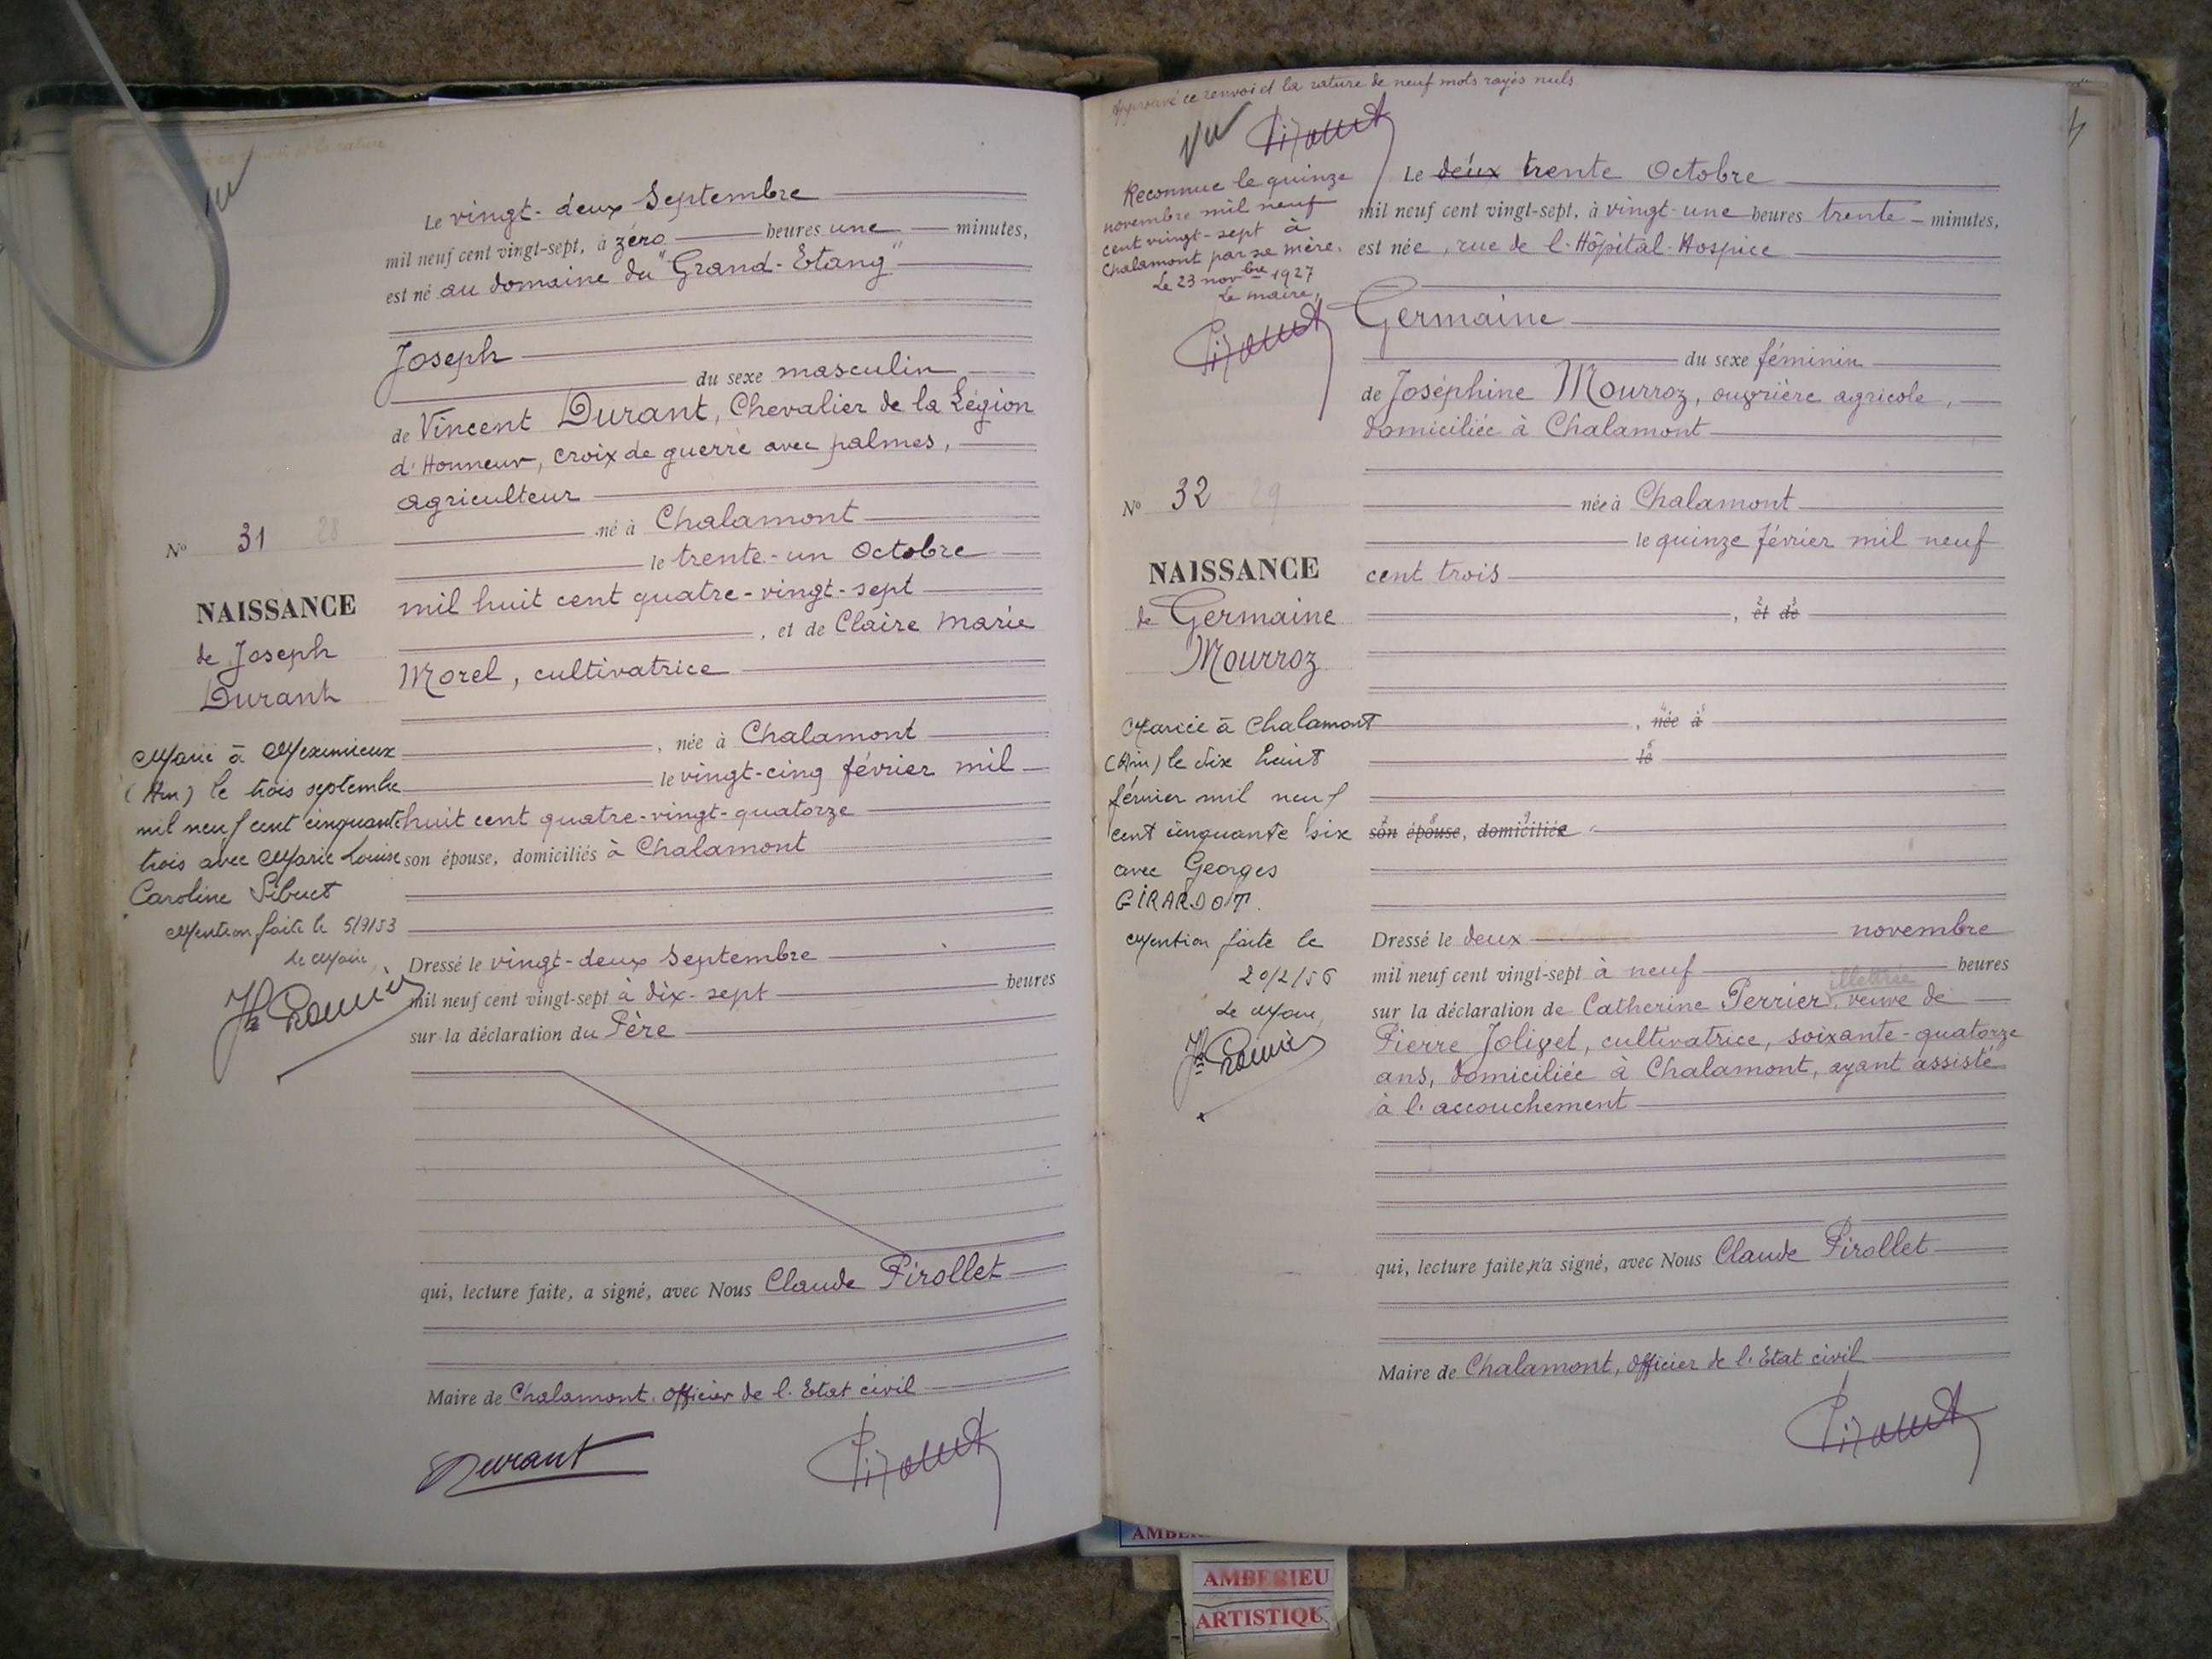 Vu
Le vingt-deux Septembre
mil neuf cent vingt-sept, à zéro heures une minutes,
est né au domaine du "Grand-Etang"
Joseph
du sexe masculin
de Vincent Durant, Chevalier de la Légion
d'Honneur, croix de guerre avec palmes,
agriculteur
né à Chalamont
le trente-un Octobre
mil huit cent quatre-vingt-sept
, et de Claire Marie
Morel, cultivatrice
, née à Chalamont
le vingt-cinq février mil
huit cent quatre-vingt-quatorze
son épouse, domiciliés à Chalamont
Dressé le vingt-deux Septembre
mil neuf cent vingt-sept à dix-sept heures
sur la déclaration du Père
qui, lecture faite, a signé, avec Nous Claude Pirollet
Maire de Chalamont, Officier de l'Etat civil
Durant
Nº 31 28
NAISSANCE
de Joseph
Durant
Marié à Meximieux
(Ain) le trois septembre
mil neuf cent cinquante
trois avec Marie Louise
Caroline Sibuet
Mention faite le 5/9/53
Le Maire,
Approuvé ce renvoi et la rature de neuf mots rayés nuls
Vu
Reconnue le quinze
novembre mil neuf
cent vingt-sept à
Chalamont par sa mère.
Le 23 novbre 1927
Le maire,
Nº 32 29
NAISSANCE
de Germaine
Mourroz
Mariée à Chalamont
(Ain) le dix huit
février mil neuf
cent cinquante six
avec Georges
GIRARDOT.
Mention faite le
20/2/56
Le Maire,
Le deux trente Octobre
mil neuf cent vingt-sept, à vingt-une heures trente minutes,
est née, rue de l'Hôpital-Hospice
Germaine
du sexe féminin
de Joséphine Mourroz, ouvrière agricole,
domiciliée à Chalamont
née à Chalamont
le quinze février mil neuf
cent trois
, et de
, née à
le
son épouse, domiciliée
Dressé le deux novembre
mil neuf cent vingt-sept à neuf heures
illettrée
sur la déclaration de Catherine Perrier, veuve de
Pierre Jolivet, cultivatrice, soixante-quatorze
ans, domiciliée à Chalamont, ayant assisté
à l'accouchement
qui, lecture faite, n'a signé, avec Nous Claude Pirollet
Maire de Chalamont, Officier de l'Etat civil
AMBERIEU
ARTISTIQU